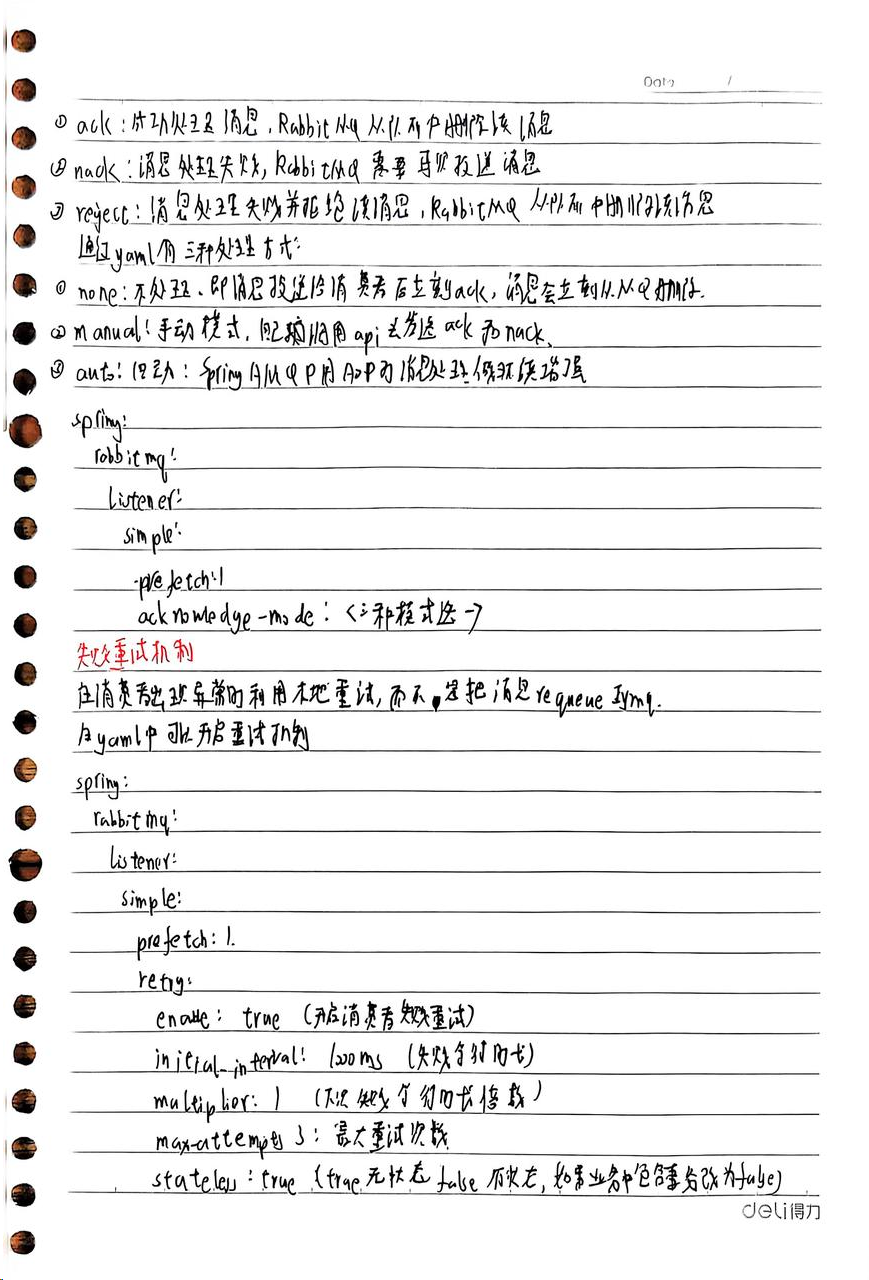 Date /
① ack：成功处理消息，RabbitMQ从队列中删除该消息
② nack：消息处理失败，RabbitMQ需要再次投递消息
③ reject：消息处理失败并拒绝该消息，RabbitMQ从队列中删除该消息
通过yaml有三种处理方式：
① none：不处理、即消息投递给消费者后立刻ack，消息会立刻从MQ删除.
② manual：手动模式，自己调用api去发送ack和nack、
③ auto：自动：Spring AMQP用AOP对消息处理做环绕增强
spring:
rabbitmq:
listener:
simple:
prefetch:1
acknowledge-mode：<三种模式选一>
失败重试机制
在消费者出现异常时利用本地重试，而不是把消息requeue到mq.
在yaml中可以开启重试机制
spring:
rabbitmq:
listener:
simple:
prefetch: 1.
retry:
enable: true （开启消费者失败重试）
initial_interval: 1000ms （失败等待时长）
multiplier: 1 （下次失败等待时长倍数）
max-attempts 3：最大重试次数
stateless：true （true无状态 false有状态，如果业务中包含事务改为false）
deli得力